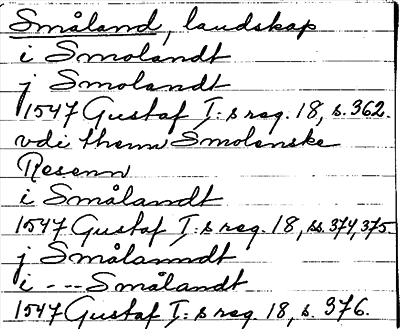 Småland, landskap
i Smolandt
j Smolandt
1547 Gustaf I:s reg. 18, s. 362.
vdi them Smolenske
Resenn
i Smålandt
1547 Gustaf I:s reg. 18, ss. 374, 375
j Smålanndt
i --- Smålandt
1547 Gustaf I:s reg. 18, s. 376.